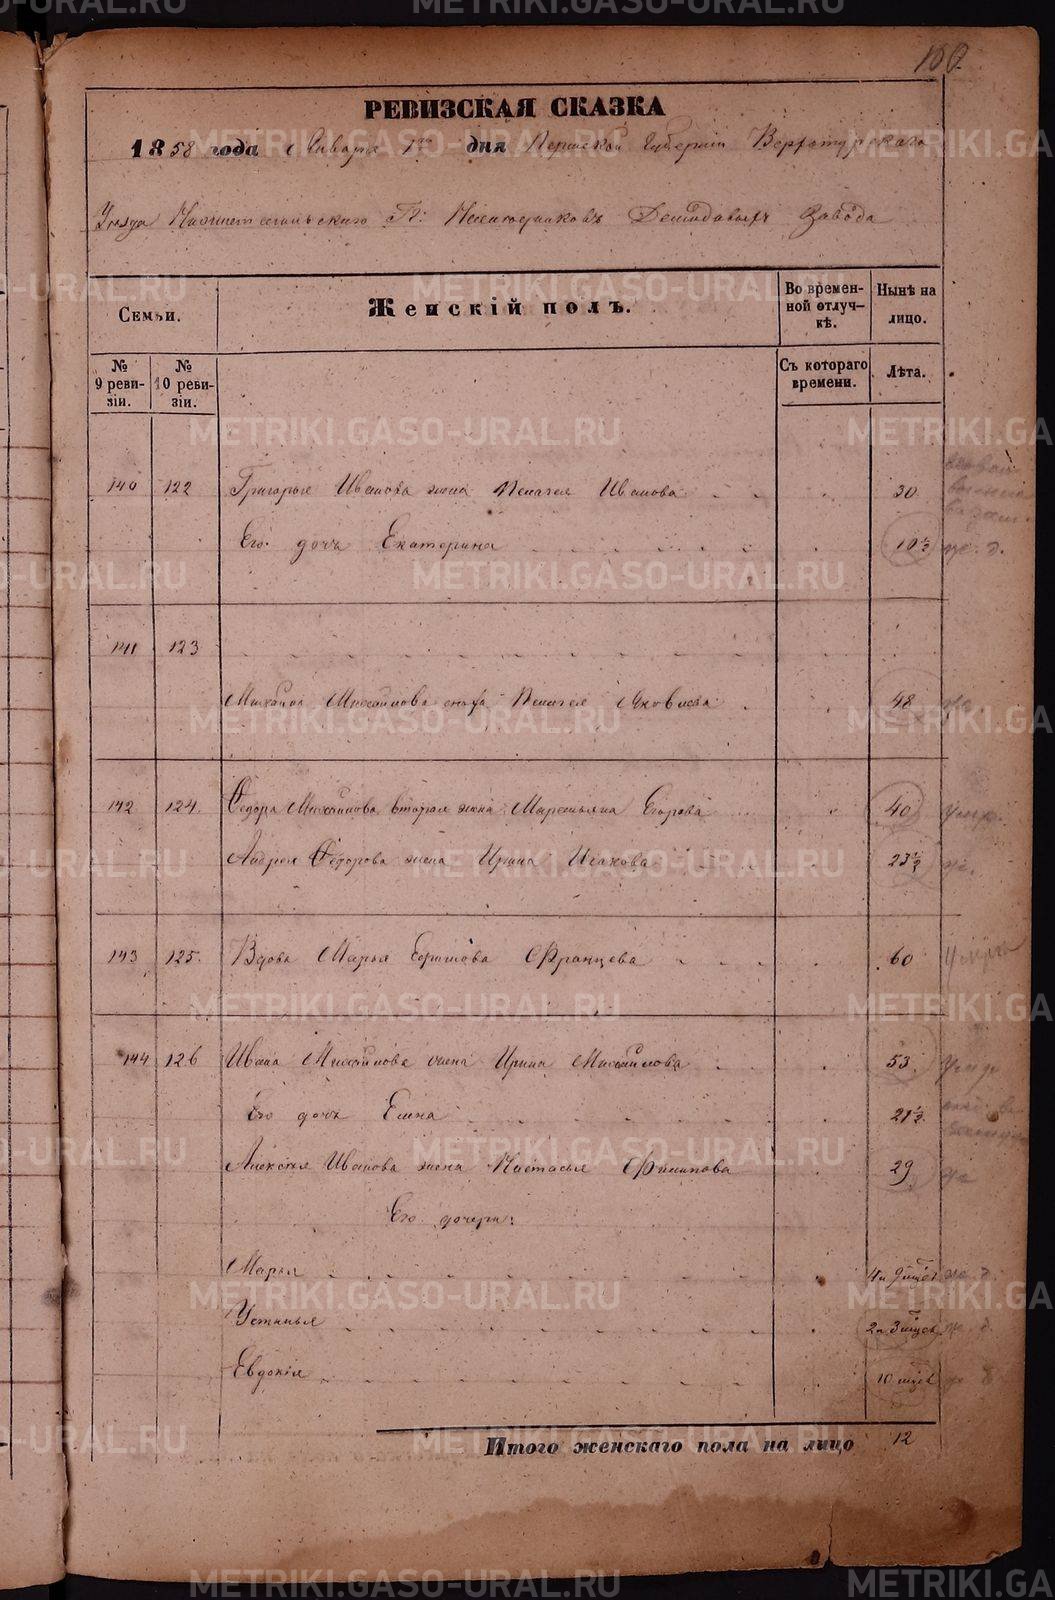 100
РЕВИЗСКАЯ СКАЗКА
1858 года Января 1го дня Пермской Губернiи Верхотурскаго
Уезда Нижнетагильскаго Гг: Наследниковъ Демидовыхъ Завода
Семьи.
Женскiй полъ.
Во времен-
ной отлуч-
кѣ.
Нынѣ на
лицо.
№
9 реви-
зiи.
№
10 реви-
зiи.
Съ котораго
времени.
Лѣта.
140 122 Григорья Иванова жена Пелагея Иванова 30
Его дочь Екатерина 10½ ж. д.
141 123
Михаила Михайлова Пелагея Яковлева 48 ж.
142 124. Федора Михайлова вторая жена Маремьяна Егорова 40 умер.
Андрея Федорова жена Ирина Исакова 23½ ж.
143 125. Вдова Марья Борисова Францева 60 умерла
144 126 Ивана Михайлова жена Ирина Михайлова 53 умер
Его дочь Елена 21½
Алексея Иванова жена Настасья Филипова 29 ж
Его дочери:
Марья 4 и 9 мцов ж. д.
Устинья 2 и 3 мцов ж. д.
Евдокiя 10 мцов ж д
Итого женскаго пола на лицо 12
METRIKI.GASO-URAL.RU